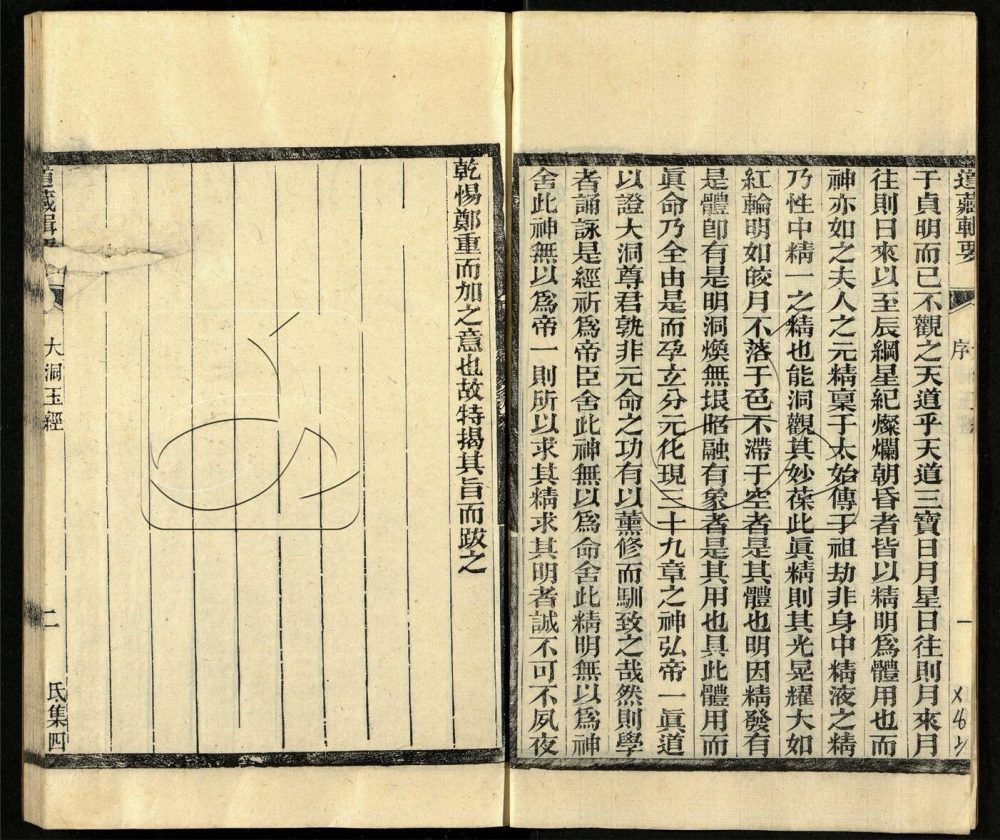 道藏輯要
序
一
于貞明而已不觀之天道乎天道三寶日月星日往則月來月
往則日來以至辰綱星紀燦爛朝昏者皆以精明爲體用也而
神亦如之夫人之元精稟于太始傳于祖劫非身中精液之精
乃性中精一之精也能洞觀其妙葆此眞精則其光晃耀大如
紅輪明如皎月不落于色不滯于空者是其體也明因精發有
是體卽有是明洞煥無垠昭融有象者是其用也具此體用而
眞命乃全由是而孕立分元化現三十九章之神弘帝一眞道
以證大洞尊君孰非元命之功有以薰修而馴致之哉然則學
者誦詠是經祈爲帝臣舍此神無以爲命舍此精明無以爲神
舍此神無以爲帝一則所以求其精求其明者誠不可不夙夜
乾惕鄭重而加之意也故特揭其旨而跋之
道藏輯
大洞玉經
二
氐集四